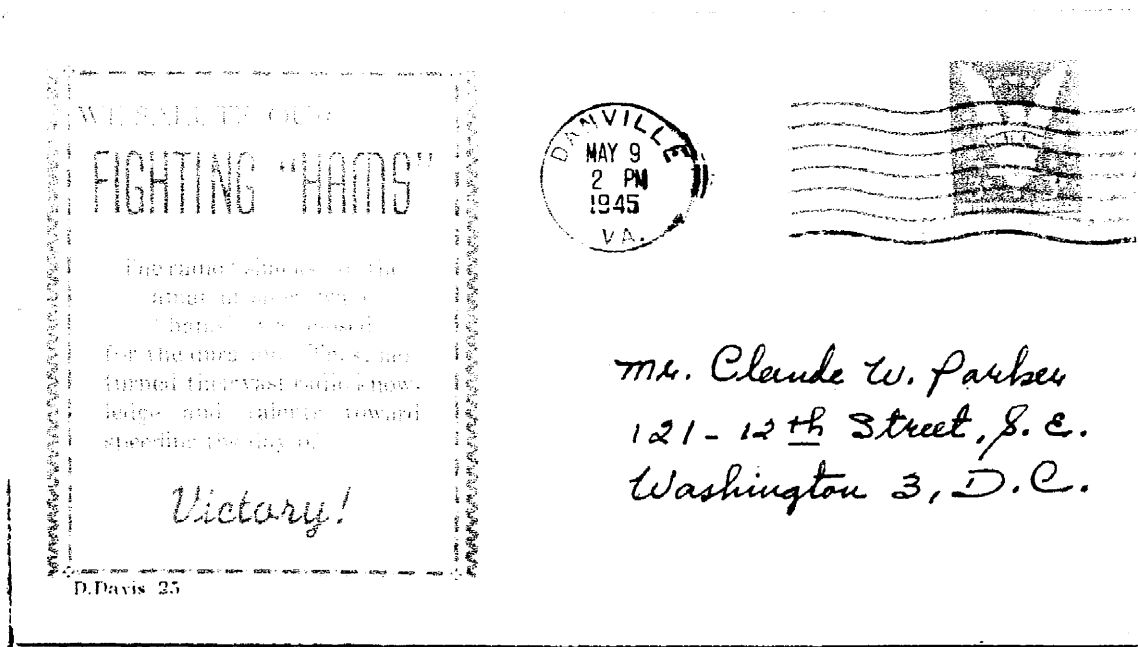 WE SALUTE OUR
FIGHTING "HAMS"
The radio of the
for the
turned their vast radio know-
ledge and talents toward
speeding the day of
Victory!
D.Davis 25
DANVILLE
MAY 9
2 PM
1945
VA.
Mr. Claude W. Parker
121-12th Street, S.E.
Washington 3, D.C.